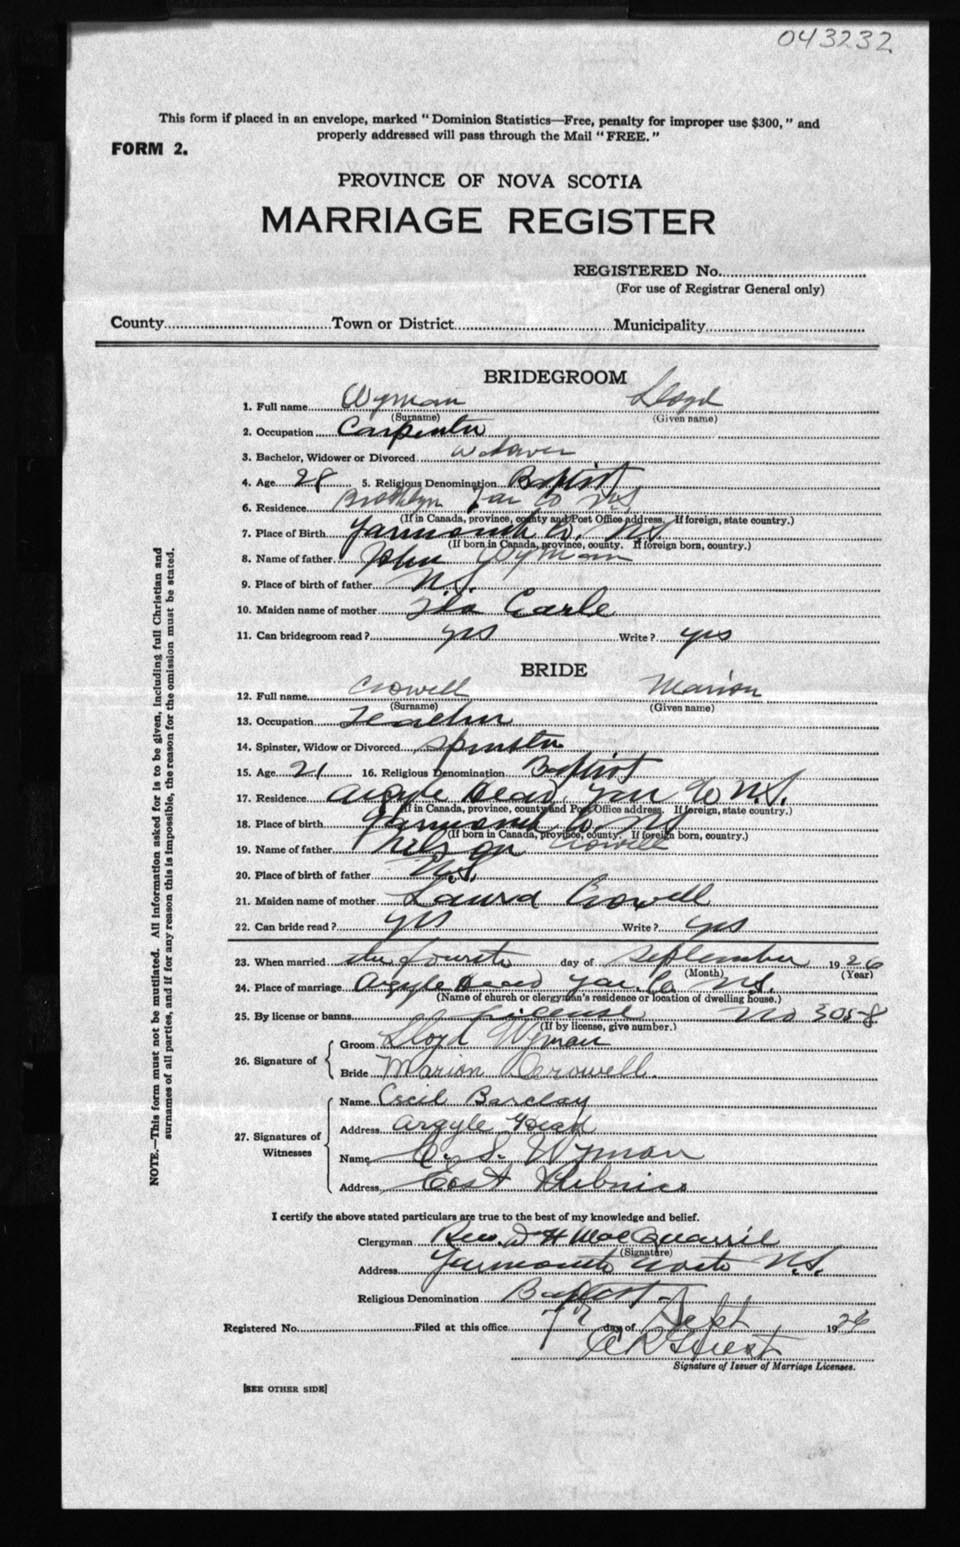 043232
This form if placed in an envelope, marked "Dominion Statistics—Free, penalty for improper use $300," and
properly addressed will pass through the Mail "FREE."
FORM 2.
PROVINCE OF NOVA SCOTIA
MARRIAGE REGISTER
REGISTERED No.
(For use of Registrar General only)
County Town or District Municipality
BRIDEGROOM
1. Full name Wyman Lloyd
(Surname) (Given name)
2. Occupation Carpenter
3. Bachelor, Widower or Divorced
4. Age 28 5. Religious Denomination Baptist
6. Residence Brooklyn Yar Co N.S.
(If in Canada, province, county and Post Office address. If foreign, state country.)
7. Place of Birth Yarmouth Co. N.S.
(If born in Canada, province, county. If foreign born, country.)
8. Name of father John Wyman
9. Place of birth of father N.S.
10. Maiden name of mother Ida Earle
11. Can bridegroom read? yes Write? yes
BRIDE
12. Full name Crowell Marion
(Surname) (Given name)
13. Occupation Teacher
14. Spinster, Widow or Divorced Spinster
15. Age 21 16. Religious Denomination Baptist
17. Residence Argyle Head, Yar Co N.S.
(If in Canada, province, county and Post Office address. If foreign, state country.)
18. Place of birth Yarmouth Co NS
(If born in Canada, province, county. If foreign born, country.)
19. Name of father Nelson Crowell
20. Place of birth of father N.S.
21. Maiden name of mother Laura Crowell
22. Can bride read? yes Write? yes
23. When married the fourth day of September 1926
(Month) (Year)
24. Place of marriage Argyle Head Yar. Co N.S.
(Name of church or clergyman's residence or location of dwelling house.)
25. By license or banns License No 3058
(If by license, give number.)
26. Signature of
Groom Lloyd Wyman
Bride Marion Crowell.
27. Signatures of Witnesses
Name Cecil Barclay
Address Argyle Head
Name S. Wyman
Address East Pubnico
I certify the above stated particulars are true to the best of my knowledge and belief.
Clergyman Rev. D H MacQuarrie
(Signature)
Address Yarmouth North N.S.
Religious Denomination Baptist
Registered No. Filed at this office 7th day of Sept 1926
Signature of Issuer of Marriage Licenses.
[SEE OTHER SIDE]
NOTE.—This form must not be mutilated. All information asked for is to be given, including full Christian and
surnames of all parties, and if for any reason this is impossible, the reason for the omission must be stated.